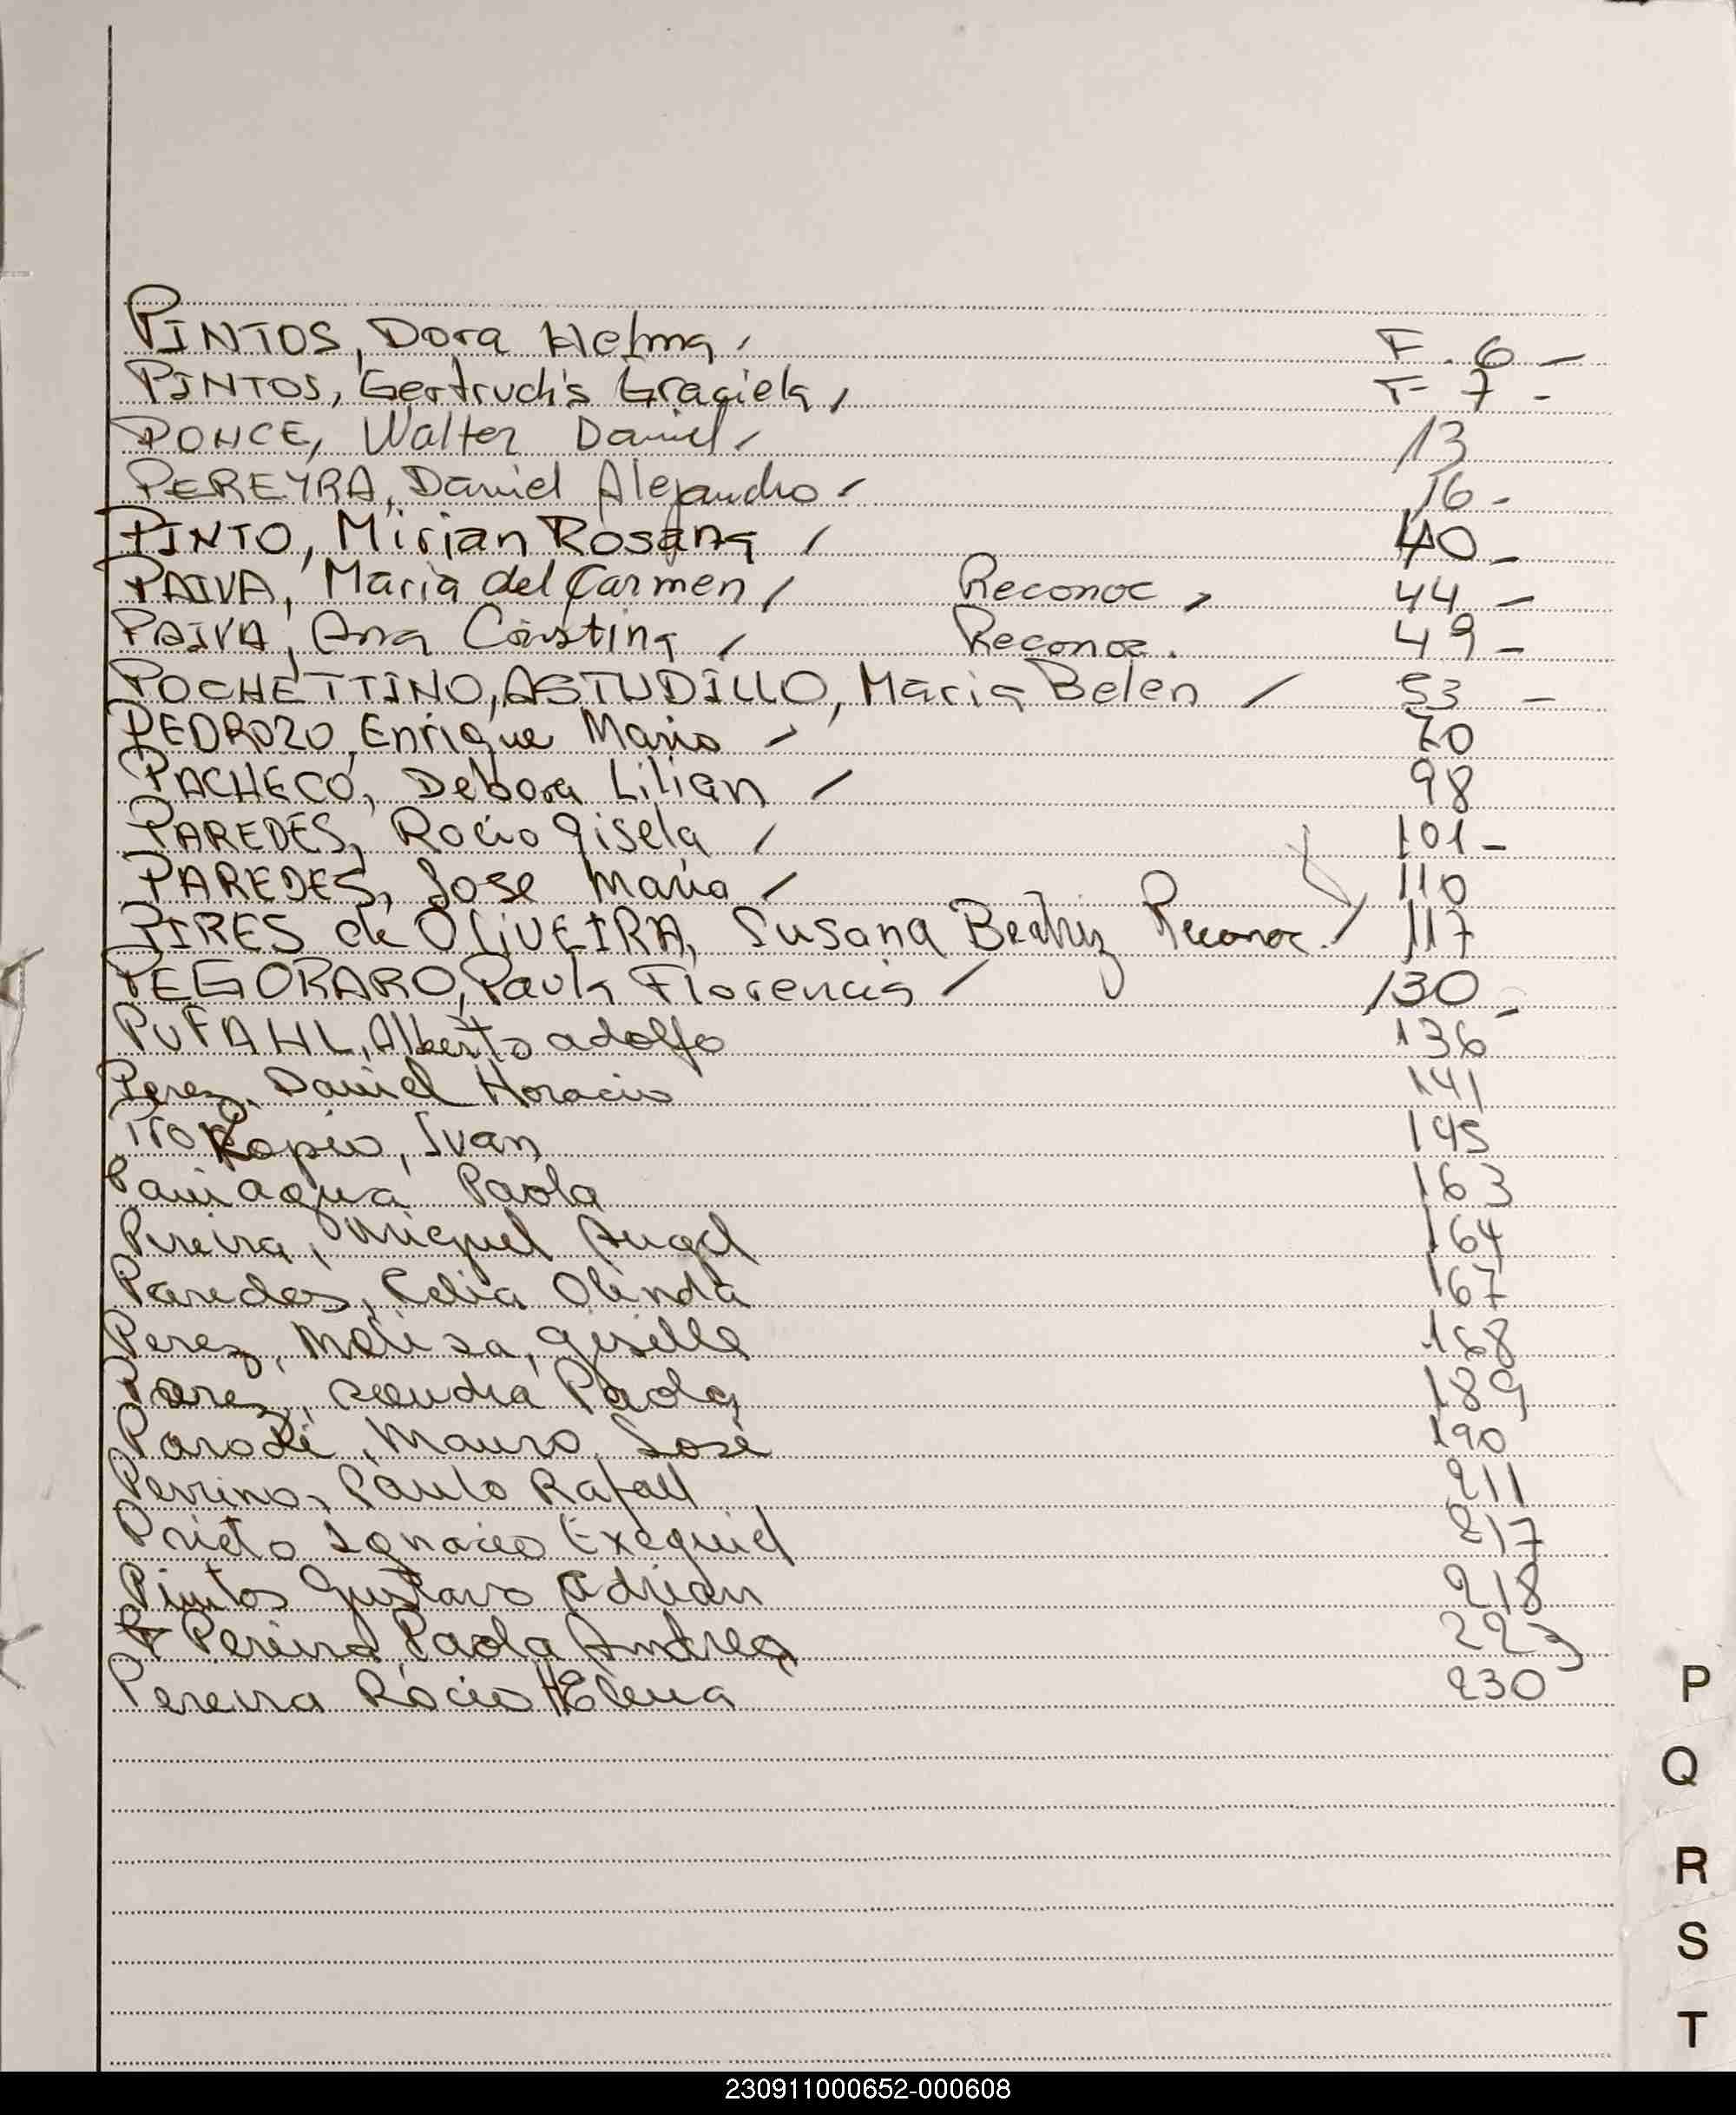 PINTOS, Dora Helma, F. 6 -
PINTOS, Gertrudis Graciela, F 7 -
PONCE, Walter Daniel 13
PEREYRA, Daniel Alejandro 16 -
PINTO, Mirian Rosana 40 -
PAIVA, Maria del Carmen Reconoc, 44 -
PAIVA, Ana Cristina Reconoc. 49 -
POCHETTINO, ASTUDILLO, Maria Belen 53 -
PEDROZO, Enrique Mario 70
PACHECO, Debora Lilian 98
PAREDES, Rocio Gisela 101 -
PAREDES, Jose Maria 110
PIRES de OLIVEIRA, Susana Beatriz Reconoc. 117
PEGORARO, Paula Florencia 130 -
PUFAHL, Alberto adolfo 136
Perez, Daniel Horacio 141
Ivan 145
Paniagua Paola 163
Pireira, Miguel Angel 164
Paredes, Celia Olinda 167
Perez, Melisa, Giselle 168
Perez, Claudia Paola 189
Parodi, Mauro José 190
Perrino, Paulo Rafael 211
Prieto Ignacio Exequiel 217
Pintos Gustavo Adrian 218
Pereira, Paola Andrea 223
Pereira Rocio Elena 230
P
Q
R
S
T
230911000652-000608